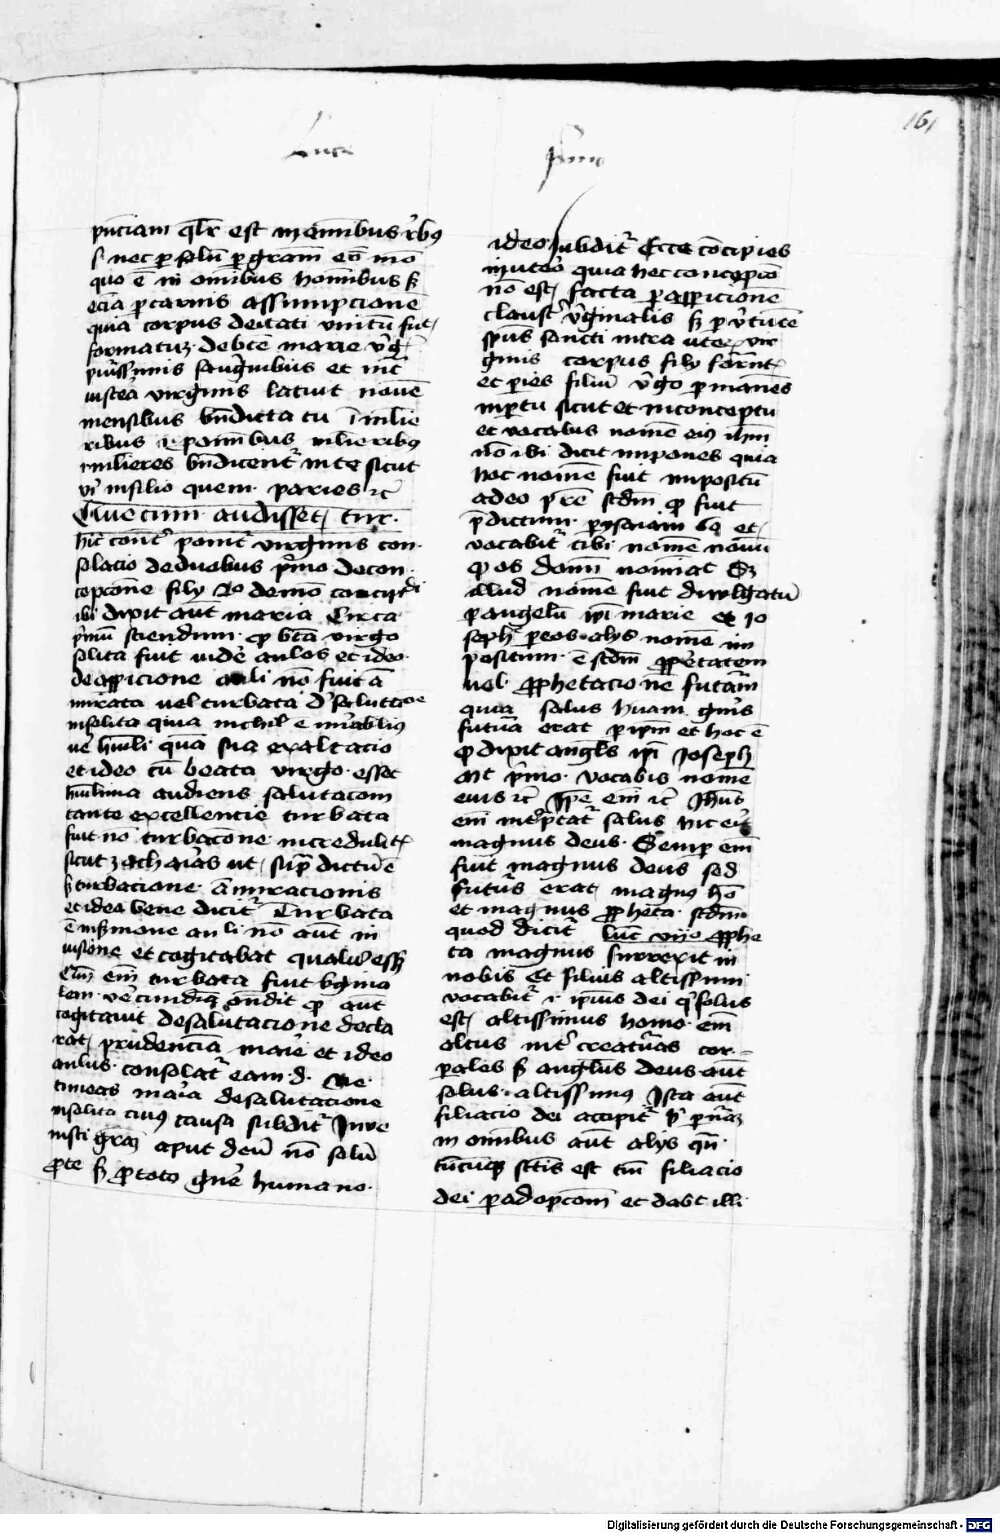 161
Luce
primo
pnciam qlr est in omnibus rebus
s nec per solum per gram eo mo
quo e in omnibus hominibus s
ecia per carnis assumpcione
quia corpus deitati vnitu fuit
formatum de bte marie virg
purissimis sanguinibus et int
viscera virginis latuit noue
mensibus bndicta tu i mulie
ribus i pre omnibus mulieribus
mulieres bndicent in te sicut
viri in filio quem paries etc
Que cum audisset tur
hic cont ponit virginis con
solacio de duobus primo de con
cepcione filij 2o de modo concipiendi
ibi dixit aut maria Circa
primu sciendum q bta virgo
solita fuit videre anlos et ideo
de apparicione anli no fuit a
mirata vel turbata de salutacone
insolita quia nichil e mirabilius
vere humili quam sua exaltacio
et ideo cu beata virgo esset
humilima audiens salutacom
tante excellentie turbata
fuit no turbacone incredulitatis
sicut zacharias ut supra dictu e
s turbacione amiracionis
et ideo bene dicit Turbata
e in sermone anli no aut in
visione et cogitabat qualis ess
Cum em turbata fuit virgina
lem verecundia ondit q aut
cogitauit de salutacione decla
rat prudencia marie et ideo
anlus consolat eam d Ne
timeas maria de salutacione
insolita cuius causa subdit Inue
nisti gram aput deu no solu
pro te s pro toto gne humano
ideo subdit Ecce concipies
in utero quia hec concepcio
no est facta per apparicione
claustri virginalis s per virtute
spus sancti intra uterum vir
ginis corpus filij formatum
et paries filiu virgo permanes
in partu sicut et in conceptu
et vocabis nome eius ihm
no ibi dicit impones quia
hoc nomen fuit impositu
a deo patre scdm q fuit
predictum per ysaiam 62 et
vocabit tibi nomen nouu
q os domini nominat Et
illud nomen fuit diwlgatu
per angelu ipi marie et io
seph per eos alijs nomen im
positum e scdm proprietatem
vel prophetacione futuram
quia salus human generis
futura erat per ipm et hoc e
q dixit angelus ipi Joseph
Mt primo vocabis nomen
eius etc Ipse em etc Jhus
em interpretat salus Hic erit
magnus deus Semper em
fuit magnus deus sed
futurus erat magnus homo
et magnus propheta scdm
quod dicit luce vijo prophe
ta magnus surrexit in
nobis Et filius altissimi
vocabit i ipius dei qui solus
est altissimus homo em
altus inter creaturas cor
porales s angelus deus aut
solus altissimus Ista aut
filiacio dei accipit per naturam
in omnibus aut alijs quan
tucumque sanctis est tm filiacio
dei per adopcom et dabit illi
Digitalisierung gefördert durch die Deutsche Forschungsgemeinschaft - DFG